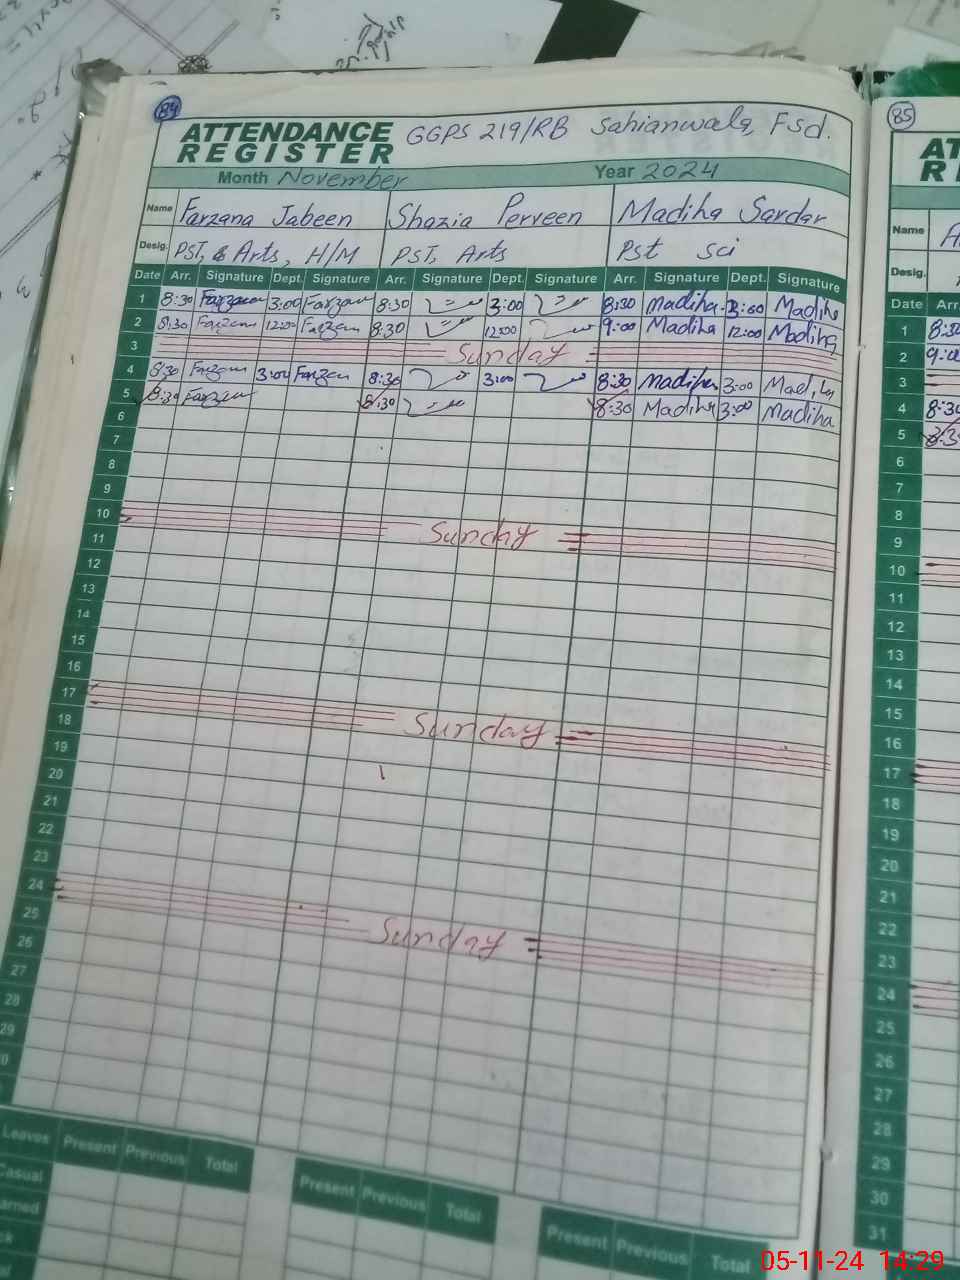 84
ATTENDANCE REGISTER GGPS 219/RB Sahianwala, Fsd.
Month November Year 2024
Name Farzana Jabeen Shazia Perveen Madiha Sardar
Desig. PST, Arts, H/M PST, Arts Pst sci
Date Arr. Signature Dept. Signature Arr. Signature Dept. Signature Arr. Signature Dept. Signature
1 8:30 Farzana 3:00 Farzana 8:30 3:00 8:30 Madiha 3:00 Madiha
2 8:30 Farzana 12:00 Farzana 8:30 12:00 9:00 Madiha 12:00 Madiha
3 Sunday
4 8:30 Farzana 3:00 Farzana 8:30 3:00 8:30 Madiha 3:00 Madiha
5 8:30 Farzana 8:30 8:30 Madiha 3:00 Madiha
6
7
8
9
10 Sunday
11
12
13
14
15
16
17 Sunday
18
19
20
21
22
23
24 Sunday
25
26
27
28
29
Leaves Present Previous Total Present Previous Total Present Previous Total
Casual
85
Name
Desig.
Date Arr.
1
2
3
4
5
6
7
8
9
10
11
12
13
14
15
16
17
18
19
20
21
22
23
24
25
26
27
28
29
30
31
05-11-24 14:29